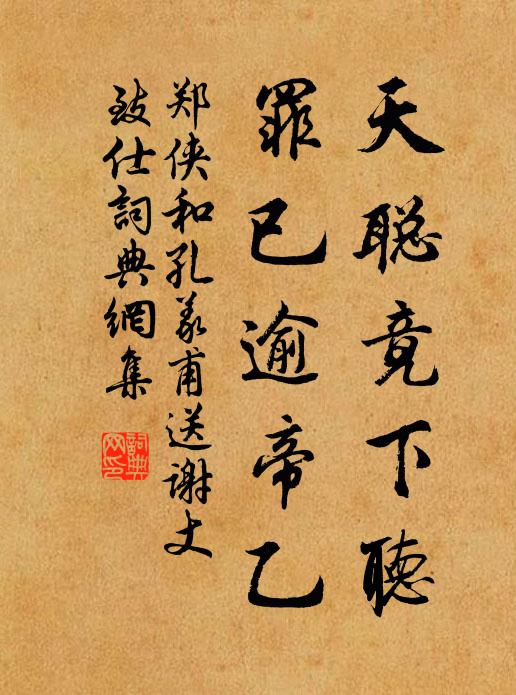 天聪竟下聽
罪已逾帝乙
郑侠和孔義甫送谢丈
致仕詞典網集
詞典网印